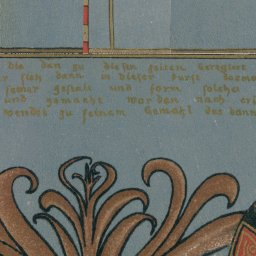 die den zu diesen zeiten Geregiert
er sich dann in dieser Furst
seiner gestalt und form solche
und gemacht worden nach
wendet zu seinem Gemahl das dann